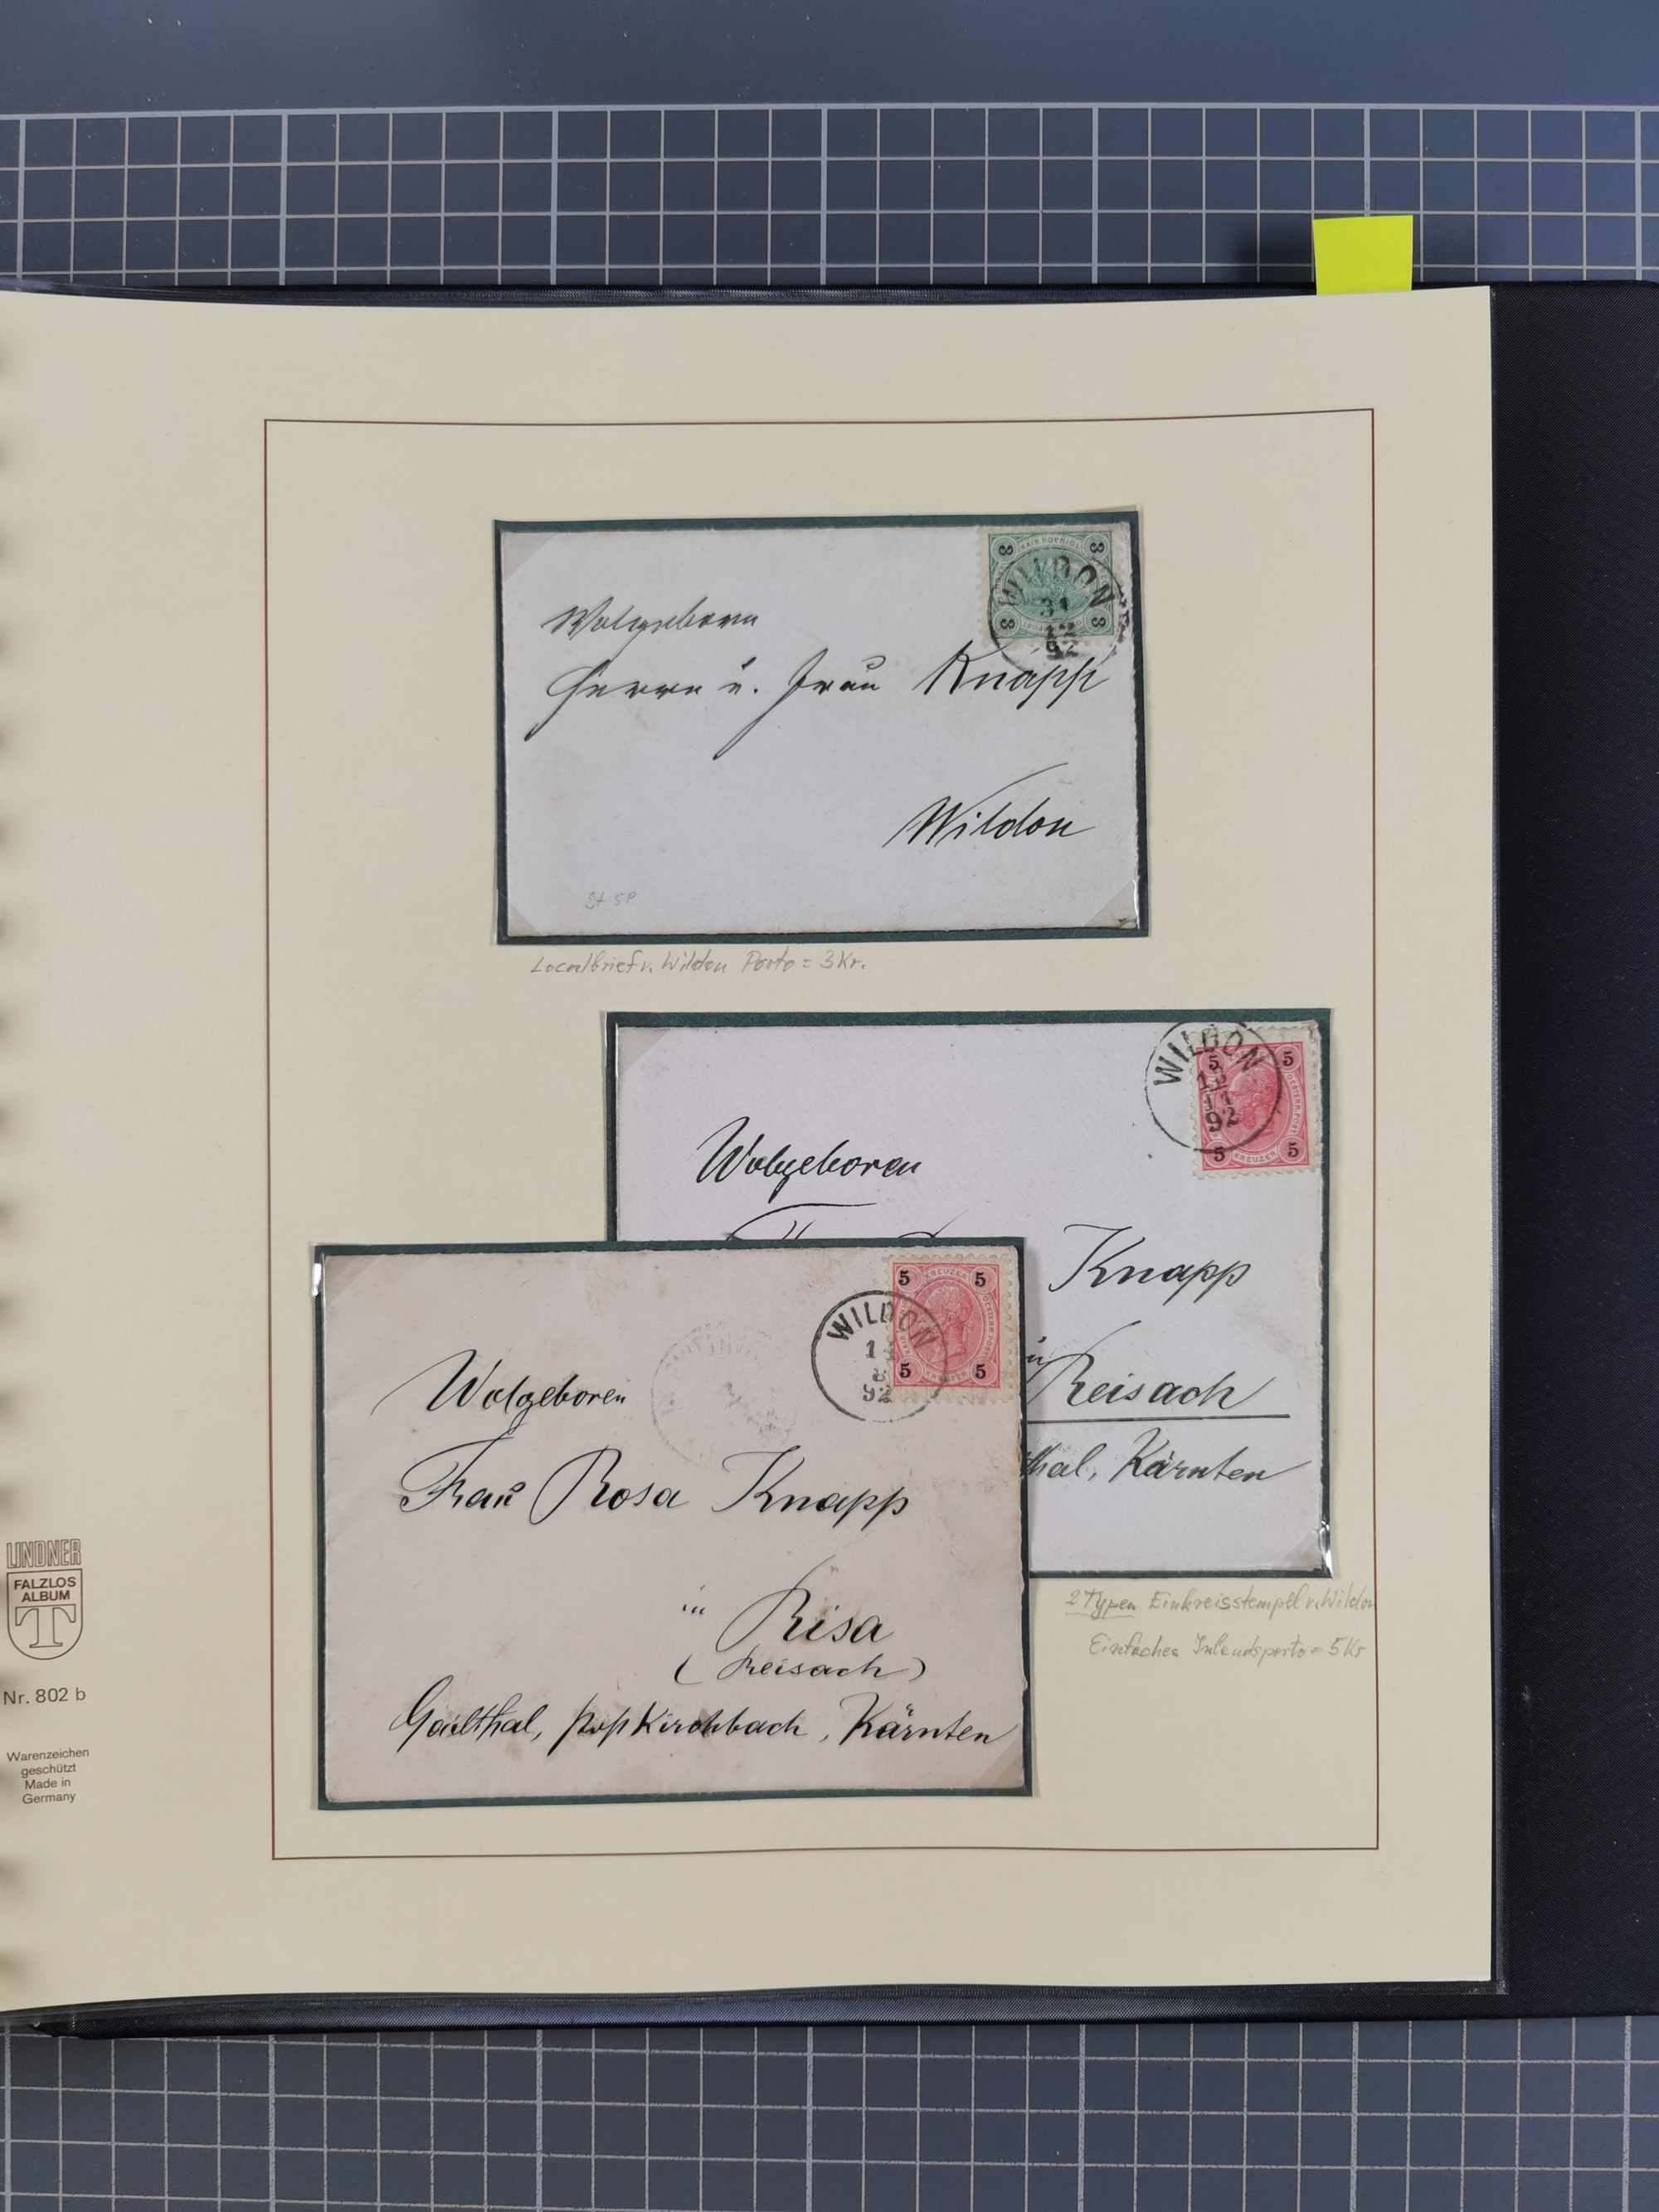 3 KAIS. KOENIGL. 3
3 3
WILDON
31
12
92
Wolgeborn
Herrn u. Frau Knapp
Wildon
St 5P
Localbrief v. Wildon Porto = 3 Kr.
WILDON
11
92
5 5
OESTERR. POST
5 KREUZER 5
Wolgeboren
Knapp
in Reisach
thal, Kärnten
2 Typen Einkreisstempel v. Wildon
Einfaches Inlandsporto = 5 Kr
5 KREUZER 5
OESTERR. POST
5 KREUZER 5
WILDON
8
92
Wolgeboren
Frau Rosa Knapp
in Risa
(Reisach)
Gailthal, post Kirchbach, Kärnten
LINDNER
FALZLOS
ALBUM
T
Nr. 802 b
Warenzeichen
geschützt
Made in
Germany